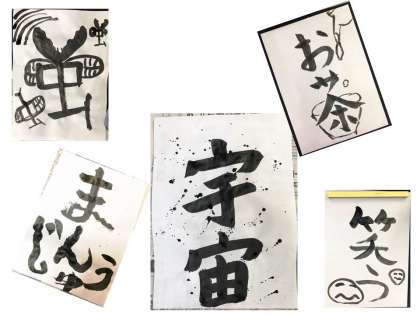 虫
お茶
まんじゅう
宇宙
笑う